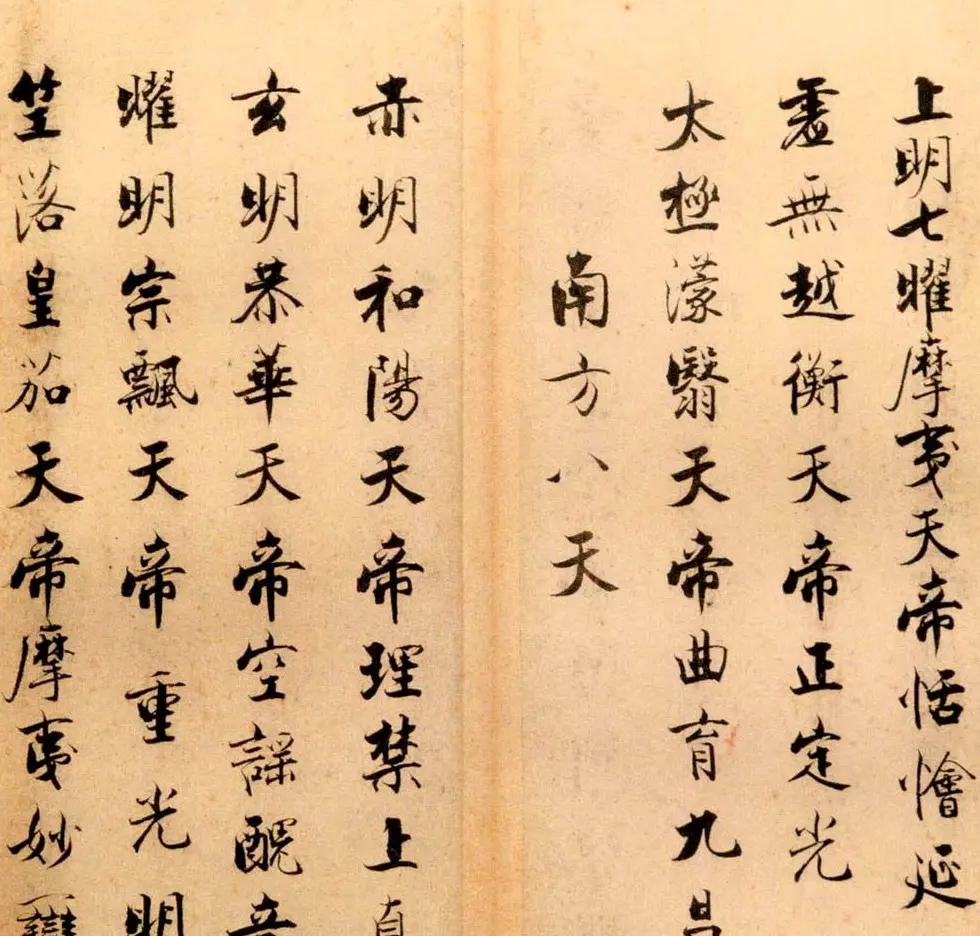 上明七曜摩夷天帝恬憺延
虛無越衡天帝正定光
太極濛翳天帝曲育九昌
南方八天
赤明和陽天帝理禁上真
玄明恭華天帝空謠醜音
耀明宗飄天帝重光明
竺落皇笳天帝摩夷妙辯